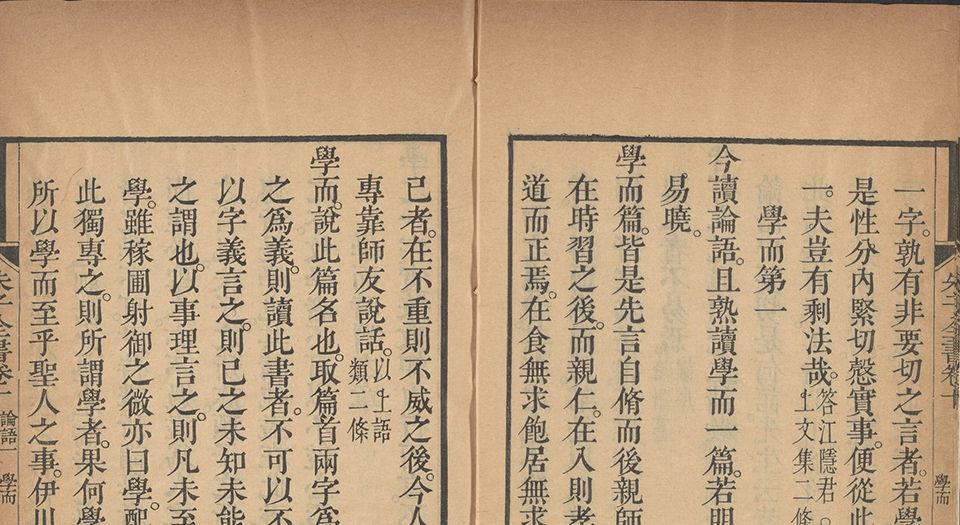 學而
一字。孰有非要切之言者。若學
是性分內緊切慤實事。便從此
一。夫豈有剩法哉。答江隱君。
上文集二條
學而第一
今讀論語。且熟讀學而一篇。若明
易曉。
學而篇。皆是先言自脩而後親師
在時習之後。而親仁。在入則孝
道而正焉。在食無求飽居無求
己者。在不重則不威之後。今人
專靠師友說話。以上語
類二條
學而。說此篇名也。取篇首兩字爲
之爲義。則讀此書者。不可以不
以字義言之。則己之未知未能
之謂也。以事理言之。則凡未至
學。雖稼圃射御之微亦曰學。配
此獨專之。則所謂學者。果何學
所以學而至乎聖人之事。伊川
論語一
學而